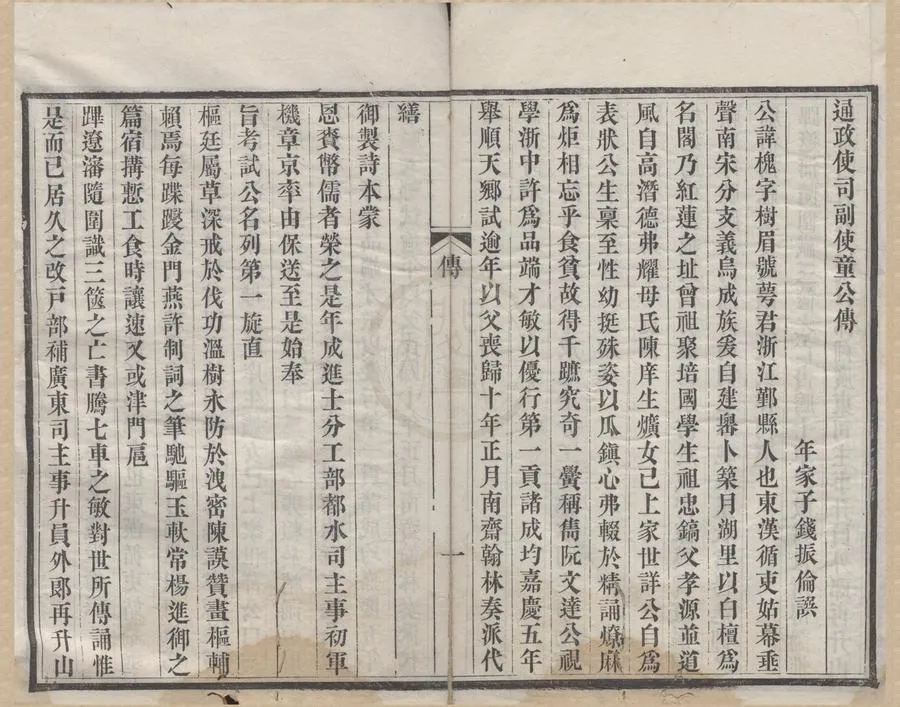 通政使司副使童公傳
年家子錢振倫譔
公諱槐字樹眉號萼君浙江鄞縣人也東漢循吏姑幕垂
聲南宋分支義烏成族爰自建嶴卜築月湖里以白檀爲
名閣乃紅蓮之址曾祖聚培國學生祖忠鎬父孝源並道
風自高潛德弗耀母氏陳庠生爌女己上家世詳公自爲
表狀公生稟至性幼挺殊姿以瓜鎮心弗輟於精誦燎麻
爲炬相忘乎食貧故得千蹠究奇一黌稱雋阮文達公視
學浙中許爲品端才敏以優行第一貢諸成均嘉慶五年
舉順天鄉試逾年以父喪歸十年正月南齋翰林奏派代
傳
一
繕
御製詩本蒙
恩賚幣儒者榮之是年成進士分工部都水司主事初軍
機章京率由保送至是始奉
旨考試公名列第一旋直
樞廷屬草深戒於伐功溫樹永防於洩密陳謨贊畫樞輔
賴焉每蹀躞金門燕許制詞之筆馳驅玉軑常楊進御之
篇宿搆慙工食時讓速又或津門扈
蹕遼瀋隨圍識三篋之亡書騰七車之敏對世所傳誦惟
是而已居久之改戸部補廣東司主事升員外郞再升山